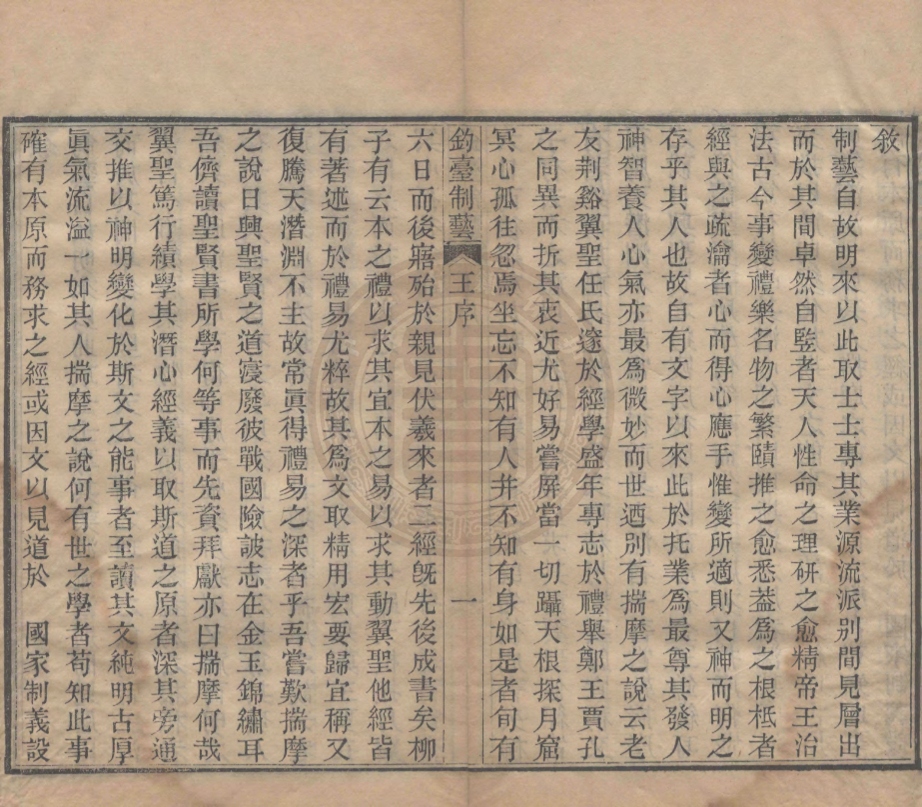 敘
制藝自故明來以此取士士專其業源流派别間見層出
而於其間卓然自監者天人性命之理研之愈精帝王治
法古今事變禮樂名物之繁賾推之愈悉葢為之根柢者
經與之疏瀹者心而得心應手惟變所適則又神而明之
存乎其人也故自有文字以來此於托業為最尊其發人
神智養人心氣亦最為微妙而世迺别有揣摩之說云老
友荆谿翼聖任氏邃於經學盛年專志於禮舉鄭王賈孔
之同異而折其衷近尤好易嘗屏當一切躡天根探月窟
冥心孤往忽焉坐忘不知有人并不知有身如是者旬有
釣臺制藝 王序 一
六日而後寤殆於親見伏羲來者二經旣先後成書矣柳
子有云本之禮以求其宜本之易以求其動翼聖他經皆
有著述而於禮易尤粹故其為文取精用宏要歸宜稱又
復騰天潛淵不主故常眞得禮易之深者乎吾嘗歎揣摩
之說日興聖賢之道寖廢彼戰國險詖志在金玉錦繡耳
吾儕讀聖賢書所學何等事而先資拜獻亦曰揣摩何哉
翼聖篤行績學其潛心經義以取斯道之原者深其旁通
交推以神明變化於斯文之能事者至讀其文純明古厚
眞氣流溢一如其人揣摩之說何有世之學者苟知此事
確有本原而務求之經或因文以見道於 國家制義設